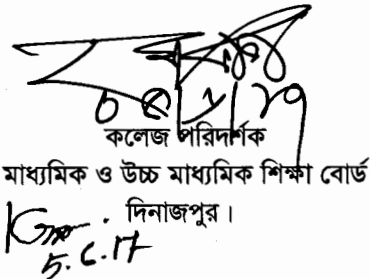 কলেজ পরিদর্শক
মাধ্যমিক ও উচ্চ মাধ্যমিক শিক্ষা বোর্ড
দিনাজপুর।
5.6.17